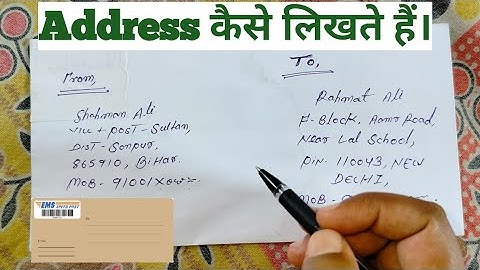 Address कैसे लिखते हैं।
From,
Shahman Ali
Vill + Post - Sultan,
Dist - Sonpur,
865910, Bihar.
Mob - 91001X
To,
Rahmat Ali
F-Block, Aamr Road,
Near Lal School,
Pin - 110043, New
Delhi,
Mob - 9
EMS
SPEED POST